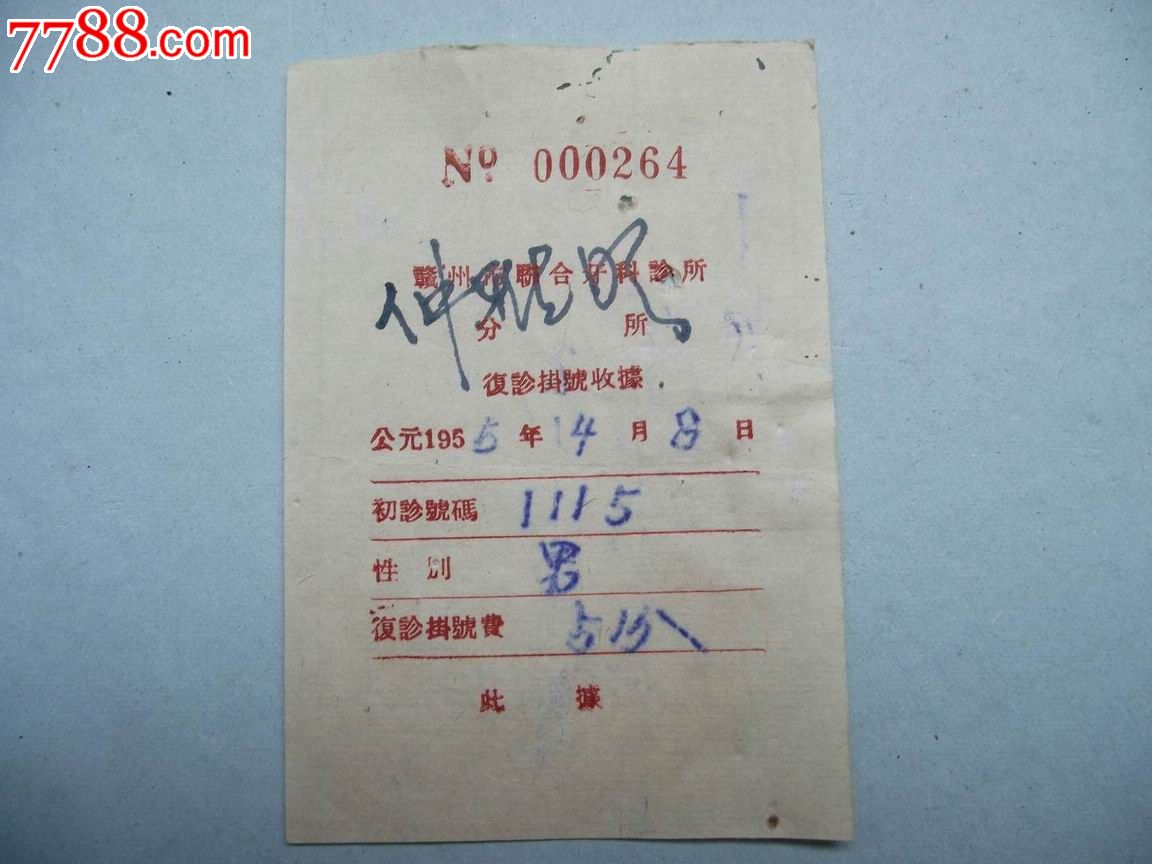 7788.com
No 000264
贛州市聯合牙科診所
分 所
復診掛號收據
公元1955年4月8日
初診號碼 1115
性別 男
復診掛號費 5分
此 據